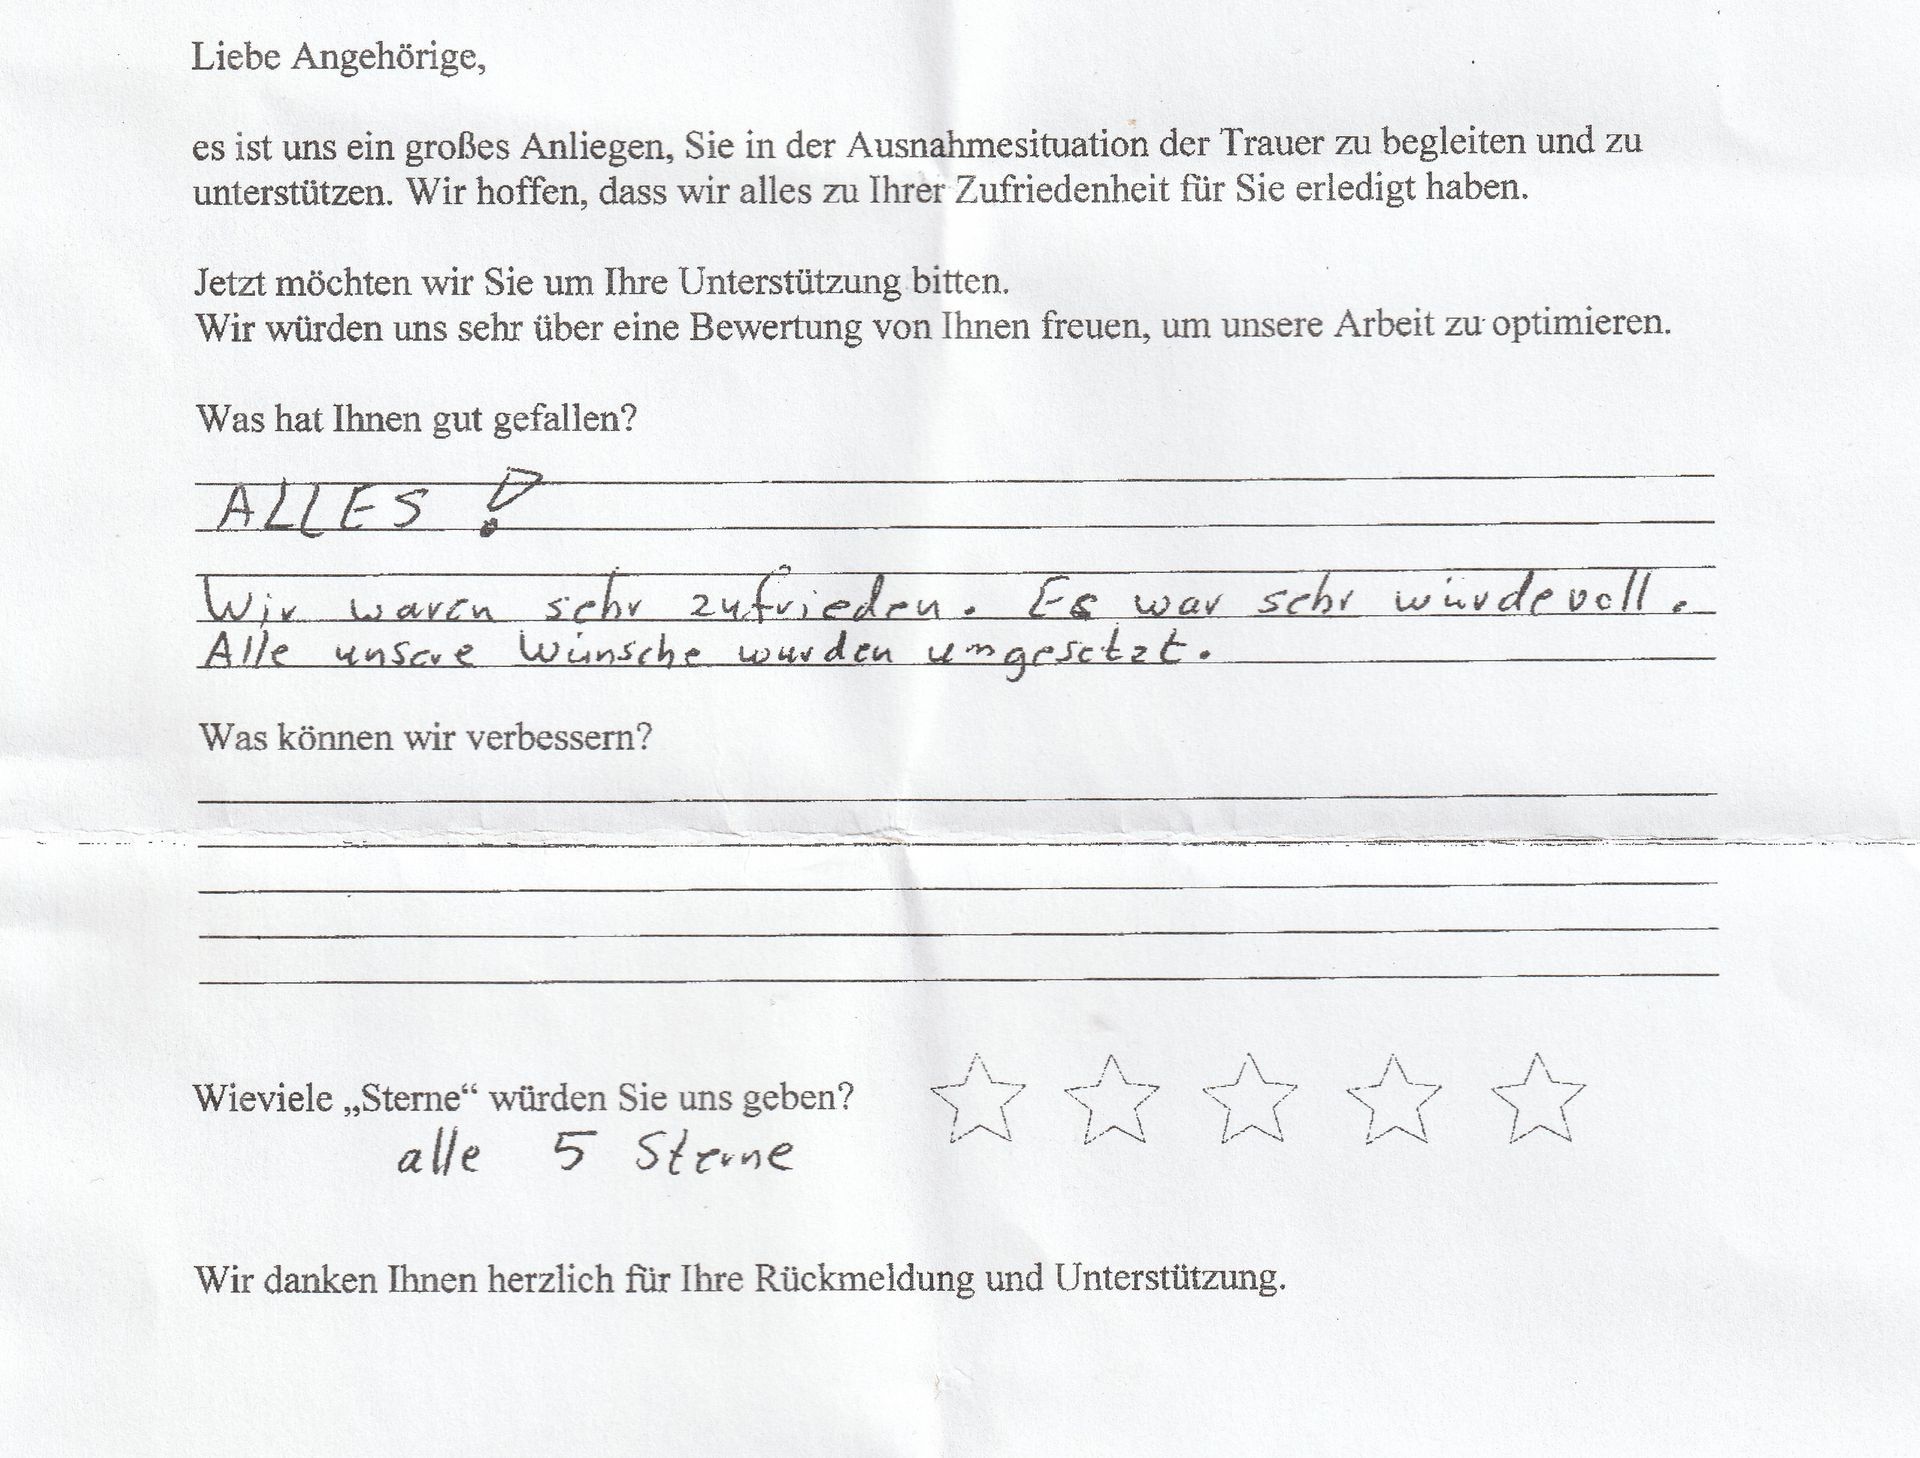 Liebe Angehörige,
es ist uns ein großes Anliegen, Sie in der Ausnahmesituation der Trauer zu begleiten und zu
unterstützen. Wir hoffen, dass wir alles zu Ihrer Zufriedenheit für Sie erledigt haben.
Jetzt möchten wir Sie um Ihre Unterstützung bitten.
Wir würden uns sehr über eine Bewertung von Ihnen freuen, um unsere Arbeit zu optimieren.
Was hat Ihnen gut gefallen?
ALLES !
Wir waren sehr zufrieden. Es war sehr würdevoll.
Alle unsere Wünsche wurden umgesetzt.
Was können wir verbessern?
Wieviele „Sterne“ würden Sie uns geben?
alle 5 Sterne
Wir danken Ihnen herzlich für Ihre Rückmeldung und Unterstützung.